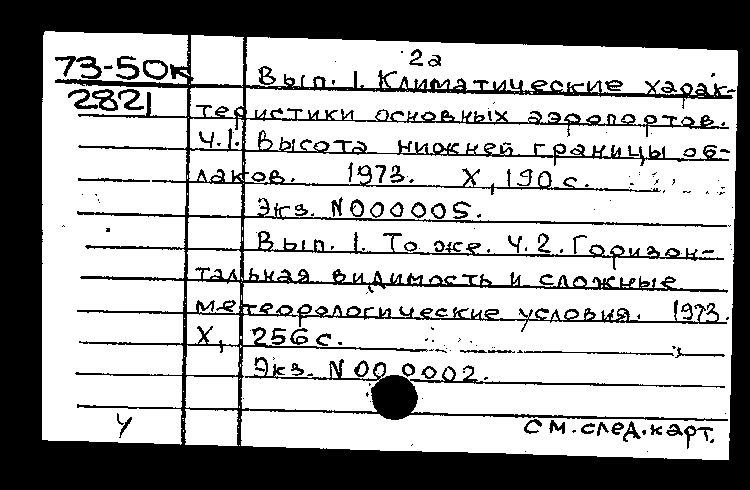 2а
73-50к Вып. 1. Климатические харак-
2821 теристики основных аэропортов.
Ч.1. Высота нижней границы об-
лаков. 1973. X, 190 с.
Экз. N000005.
Вып. 1. То же. Ч.2. Горизон-
тальная видимость и сложные
метеорологические условия. 1973.
X, 256 с.
Экз. N000002.
У см. след. карт.